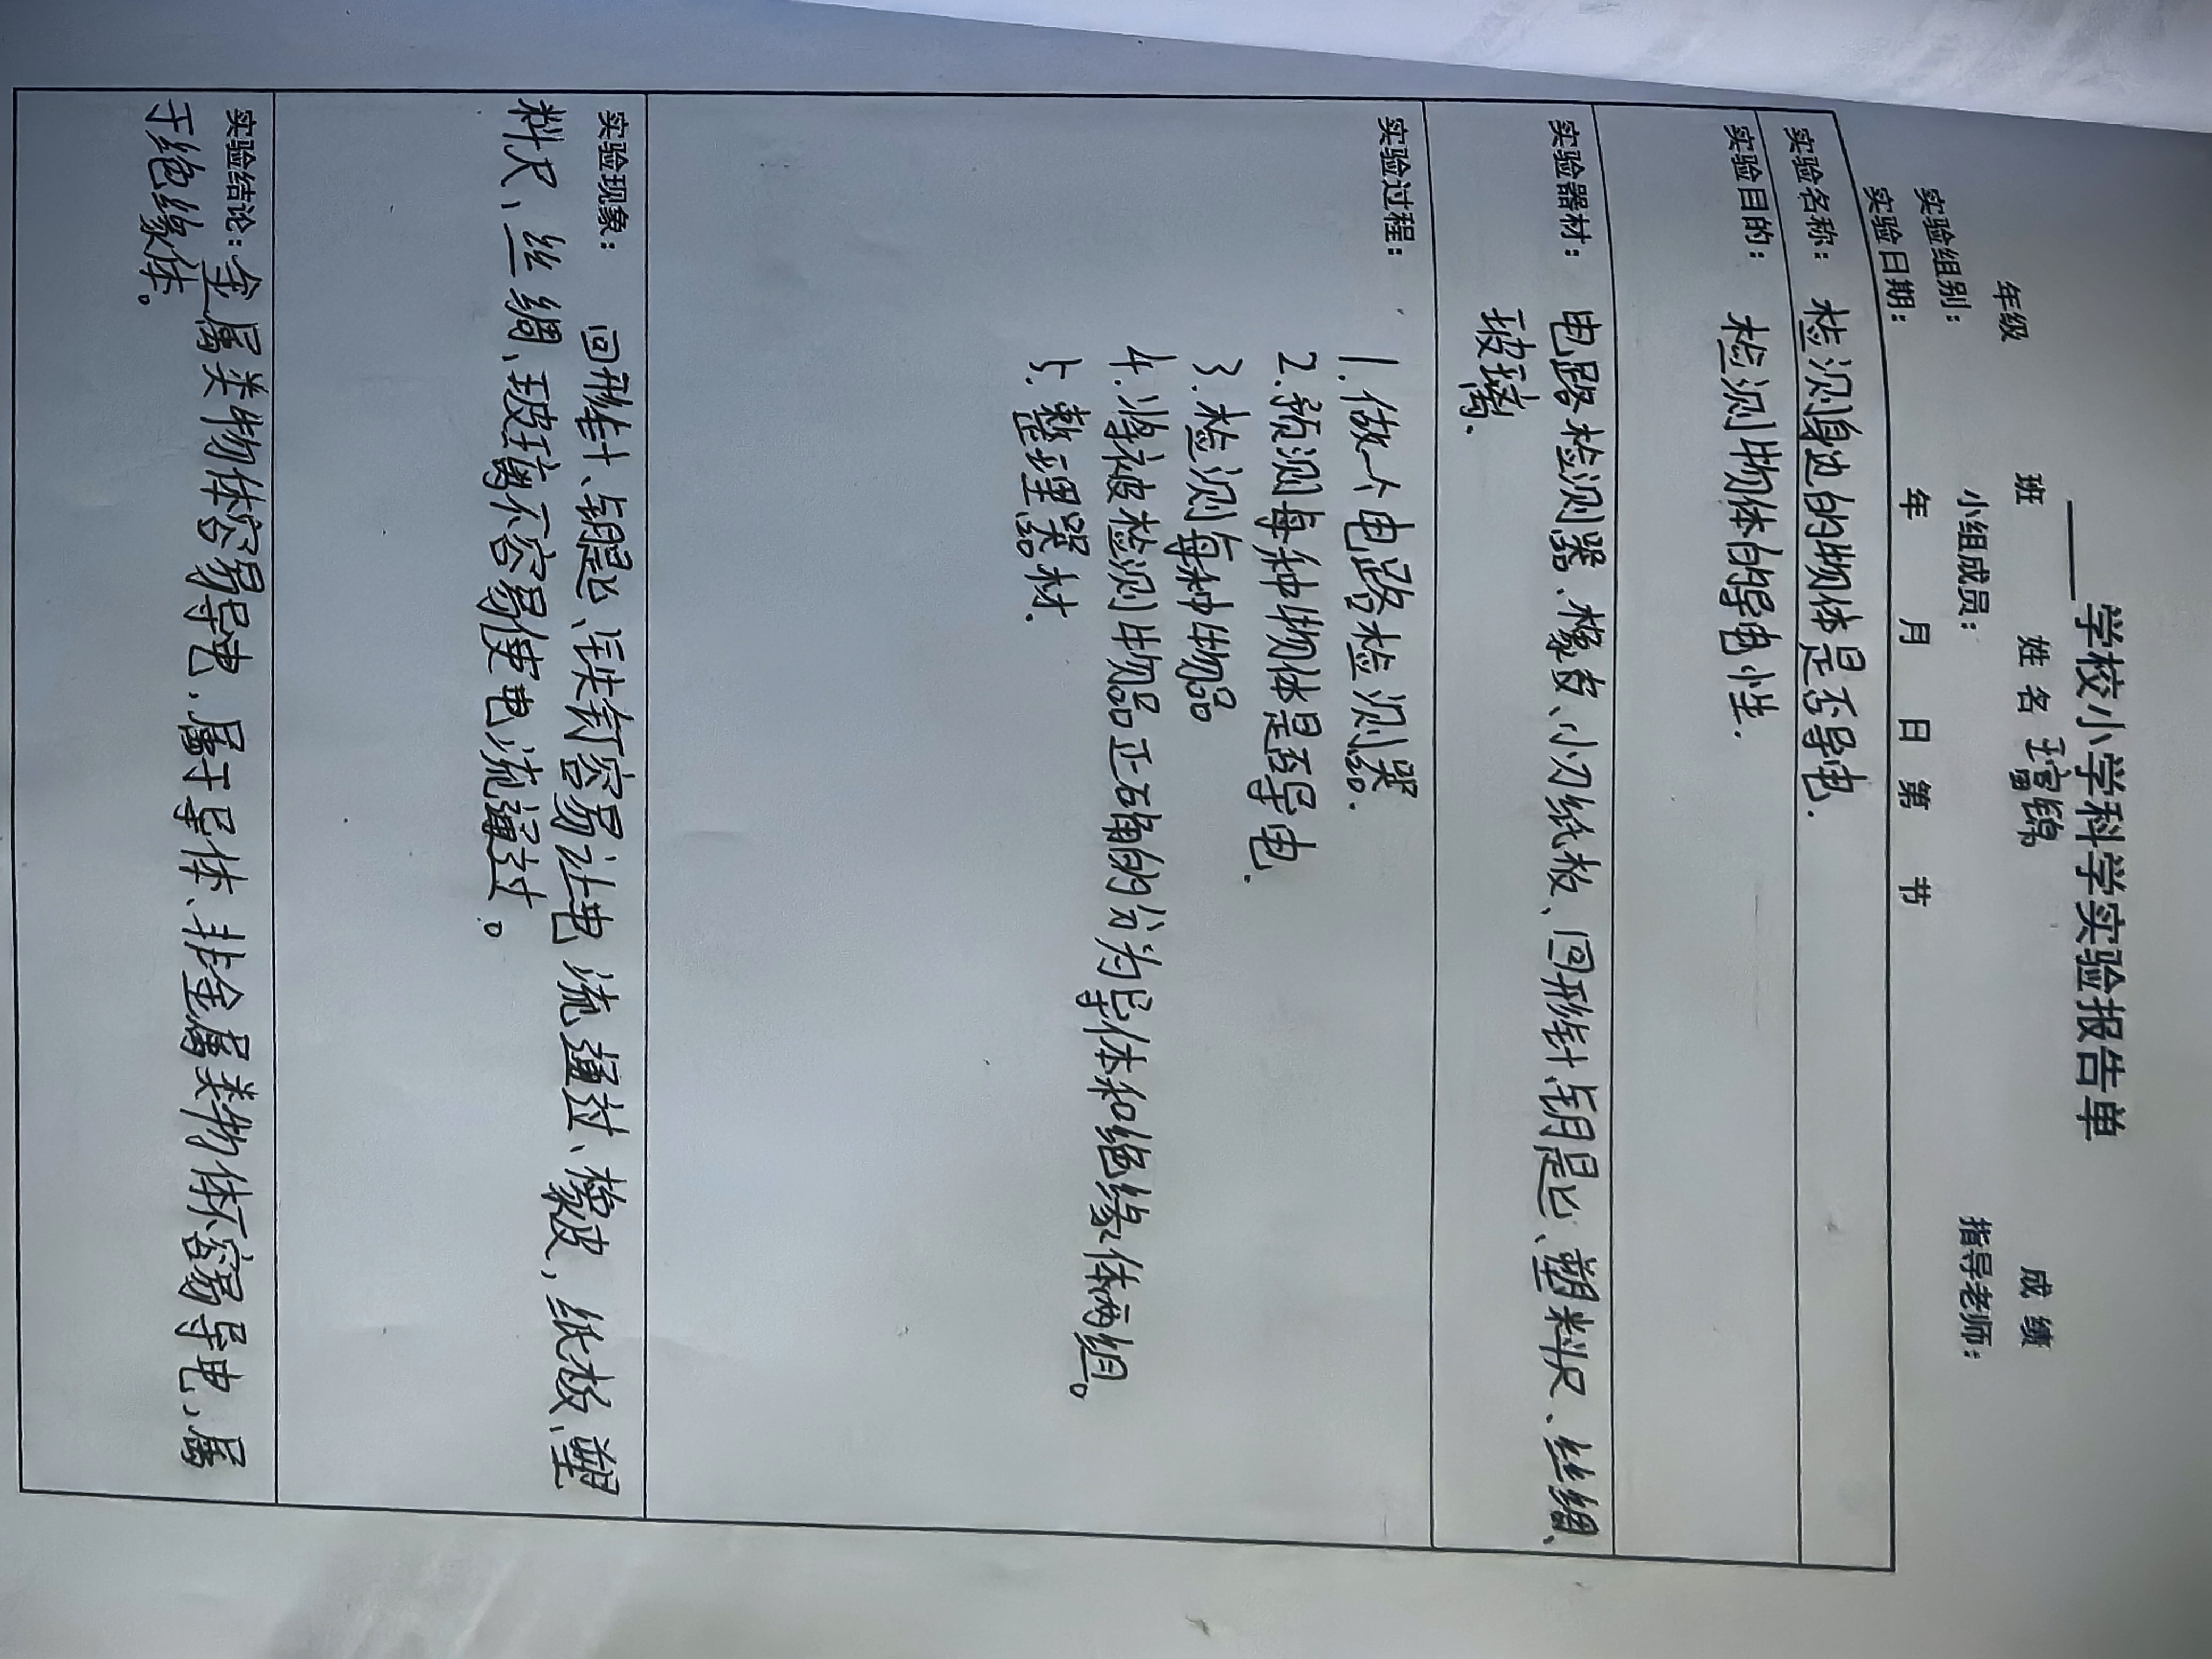 ____学校小学科学实验报告单
年级 班 姓名 王富锦 成绩
实验组别： 小组成员： 指导老师：
实验日期： 年 月 日 第 节
实验名称：检测身边的物体是否导电.
实验目的： 检测物体的导电性.
实验器材： 电路检测器、橡皮、小刀纸板、回形针、钥匙、塑料尺、丝绸、
玻璃.
实验过程：
1.做个电路检测器.
2.预测每种物体是否导电.
3.检测每种物品
4.将被检测物品正确的分为导体和绝缘体两组。
5.整理器材.
实验现象： 回形针、钥匙、铁钉容易让电流通过、橡皮，纸板、塑
料尺、丝绸、玻璃不容易使电流通过。
实验结论：金属类物体容易导电，属于导体、非金属类物体不容易导电，属
于绝缘体。